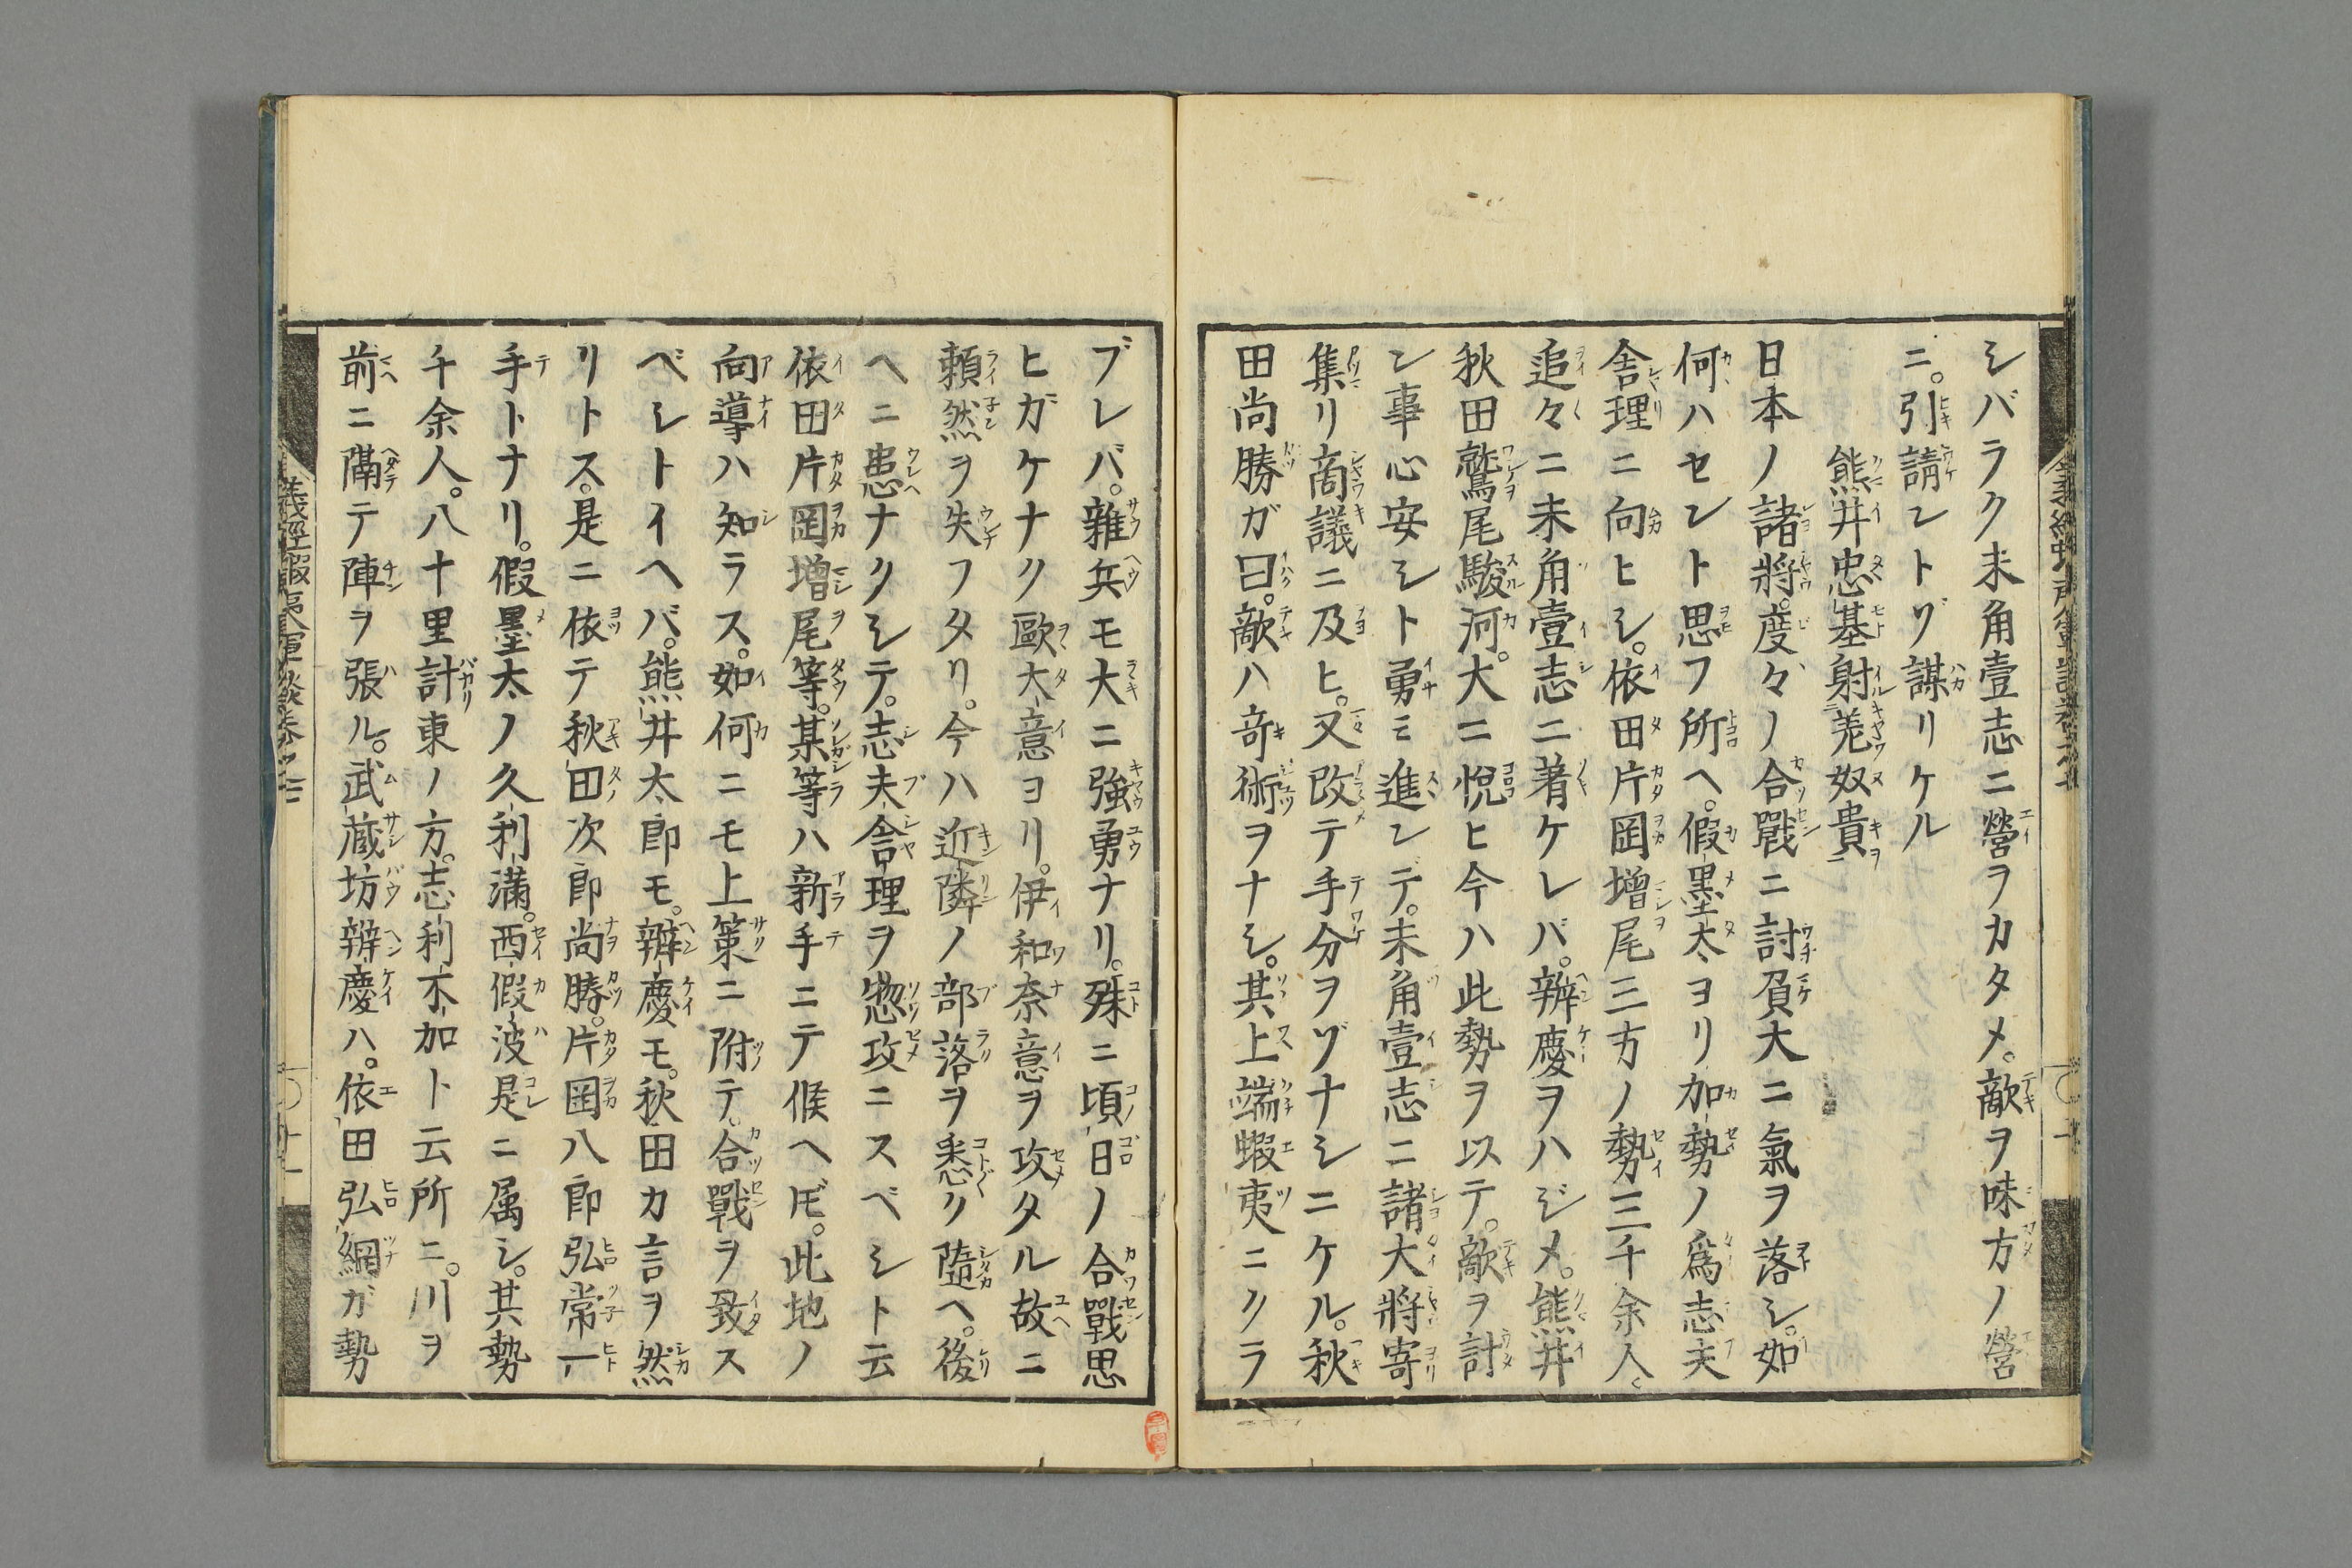 シバラク未角壹志ニ營ヲカタメ。敵ヲ味方ノ營
ニ。引請ントゾ謀リケル
熊井忠基射羌奴貴
日本ノ諸將。度々ノ合戰ニ討負大ニ氣ヲ落シ。如
何ハセント思フ所ヘ。假墨太ヨリ加勢ノ爲志夫
舎理ニ向ヒシ。依田片岡增尾三方ノ勢三千余人。
追々ニ未角壹志ニ着ケレバ。辨慶ヲハジメ。熊井
秋田鷲尾駿河。大ニ悦ヒ今ハ此勢ヲ以テ。敵ヲ計
ン事心安シト勇ミ進ンデ。未角壹志ニ諸大將寄
集リ商議ニ及ヒ。又改テ手分ヲゾナシニケル。秋
田尚勝ガ曰。敵ハ竒術ヲナシ。其上端蝦夷ニクラ
ブレバ。雜兵モ大ニ強勇ナリ。殊ニ頃日ノ合戰思
ヒガケナク歐太意ヨリ。伊和奈意ヲ攻タル故ニ
頼然ヲ失フタリ。今ハ近隣ノ部落ヲ悉ク隨ヘ。後
ヘニ患ナクシテ。志夫舎理ヲ惣攻ニスベシト云
依田片岡增尾等。某等ハ新手ニテ候ヘ𪜈。此地ノ
向導ハ知ラス。如何ニモ上策ニ附テ。合戰ヲ致ス
ベシトイヘバ。熊井太郎モ。辨慶モ。秋田カ言ヲ然
リトス。是ニ依テ秋田次郎尚勝。片岡八郎弘常一
手トナリ。假墨太ノ久利満。西假波是ニ属シ。其勢
千余人。八十里計東ノ方。志利不加ト云所ニ。川ヲ
前ニ隔テ陣ヲ張ル。武蔵坊辨慶ハ。依田弘綱ガ勢
義經蝦夷軍談巻之
十一